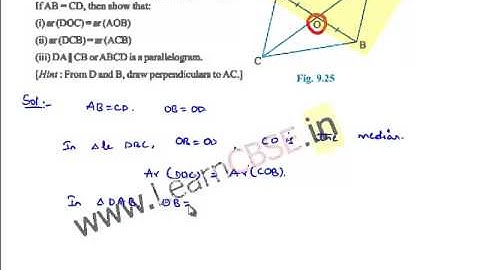 If AB = CD, then show that:
(i) ar (DOC) = ar (AOB)
(ii) ar (DCB) = ar (ACB)
(iii) DA ∥ CB or ABCD is a parallelogram.
[Hint : From D and B, draw perpendiculars to AC.]
O
B
C
Fig. 9.25
Sol:-
AB=CD. OB=OD
In Δle DBC, OB=OD , CO is the median.
Ar (DOC) = Ar (COB).
In ΔDAB OB=
www.LearnCBSE.in